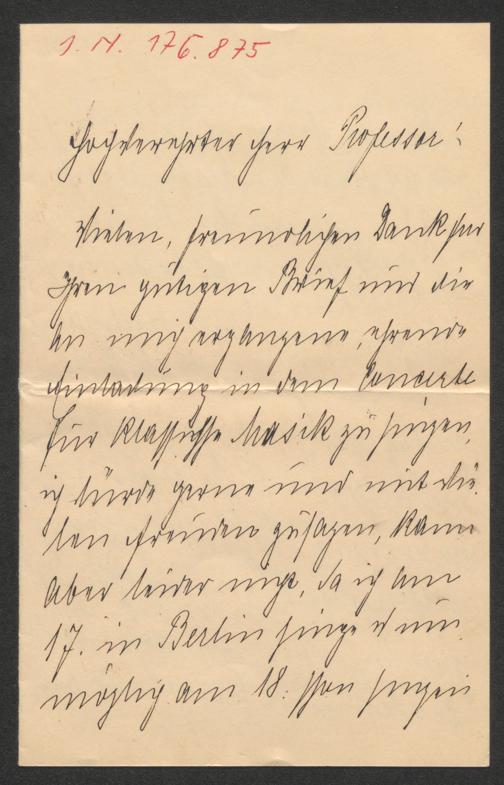 I. N. 176.875
Hochverehrter Herr Professor!
Vielen, freundlichen Dank für
Ihren gütigen Brief und die
an mich ergangene, ehrende
Einladung in dem Concerte
für klassische Musik zu singen,
ich würde gerne und mit vie
len Freuden zusagen, kann
aber leider nicht, da ich am
17. in Berlin singe u un
möglich am 18. schon singen